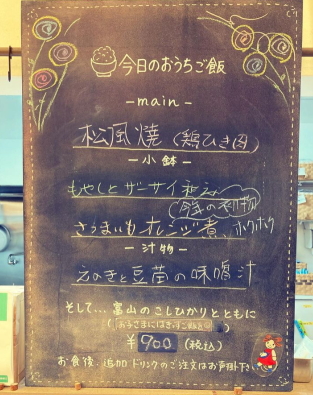 今日のおうちご飯
-main-
松風焼（鶏ひき肉）
-小鉢-
もやしとザーサイ和え
今年の初物
さつまいもオレンジ煮、ホクホク
-汁物-
えのきと豆苗の味噌汁
そして…富山のこしひかりとともに
￥900（税込）
お食後、追加ドリンクのご注文はお声掛け下さい